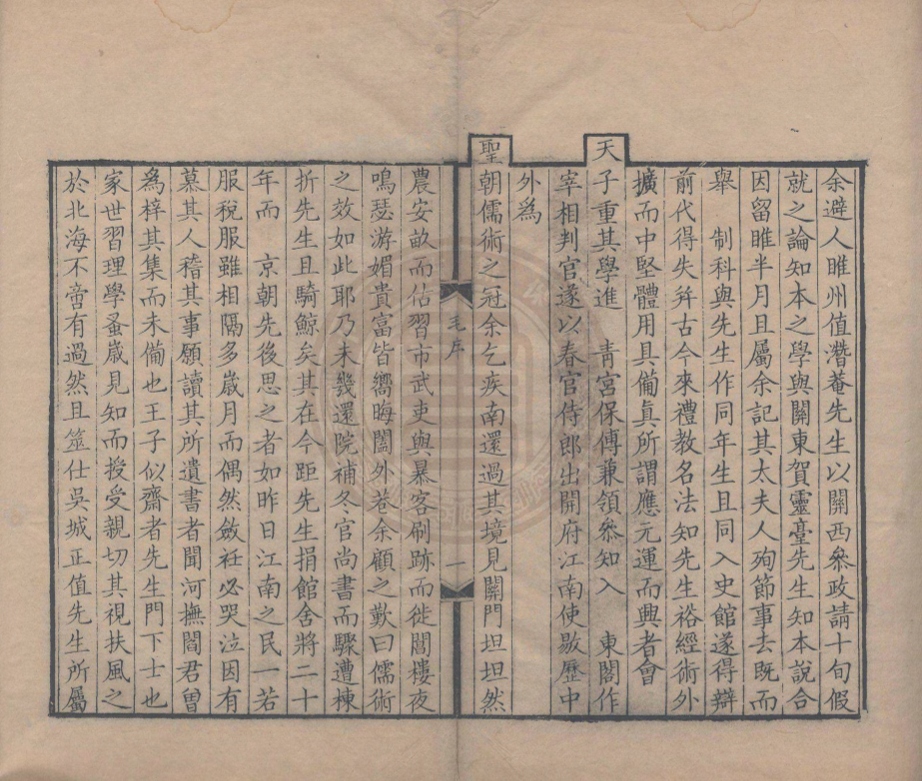 余避人睢州值潛菴先生以關西叅政請十旬假
就之論知本之學與關東賀靈臺先生知本說合
因留睢半月且屬余記其太夫人殉節事去既而
舉　制科與先生作同年生且同入史館遂得辯
前代得失并古今來禮教名法知先生裕經術外
擴而中堅體用具備真所謂應元運而興者會
天子重其學進　青宮保傅兼領叅知入　東閣作
宰相判官遂以春官侍郎出開府江南使敭歷中
外爲
聖朝儒術之冠余乞疾南還過其境見關門坦坦然
毛序
一
農安畝而估習市武吏與暴客刷跡而徙閶樓夜
鳴瑟游媚貴富皆嚮晦闔外巷余顧之歎曰儒術
之效如此耶乃未幾還院補冬官尚書而驟遭棟
折先生且騎鯨矣其在今距先生捐館舍將二十
年而　京朝先後思之者如昨日江南之民一若
服稅服雖相隔多歲月而偶然斂衽必哭泣因有
慕其人稽其事願讀其所遺書者聞河撫閻君曾
爲梓其集而未備也王子似齋者先生門下士也
家世習理學蚤歲見知而授受親切其視扶風之
於北海不啻有過然且筮仕吳城正值先生所屬